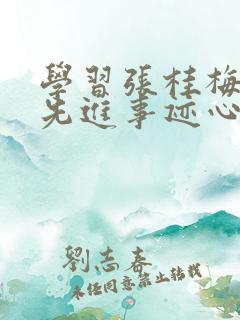 學習張桂梅
先進事迹心
劉志春
未經同意禁止轉載